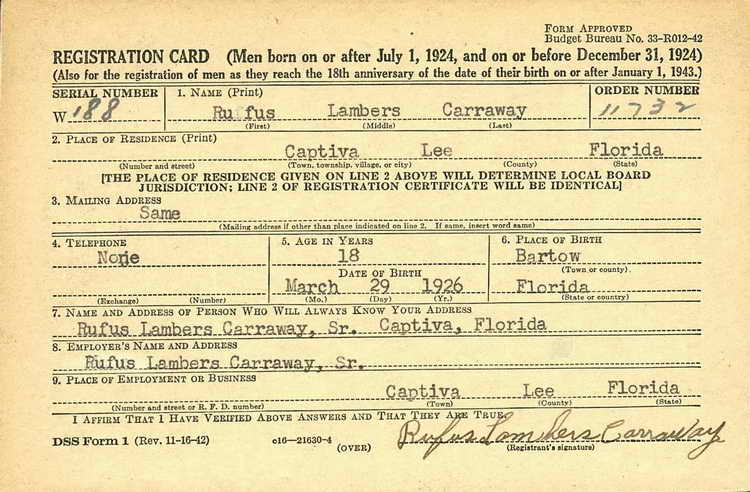 FORM APPROVED
Budget Bureau No. 33-R012-42
REGISTRATION CARD (Men born on or after July 1, 1924, and on or before December 31, 1924)
(Also for the registration of men as they reach the 18th anniversary of the date of their birth on or after January 1, 1943.)
SERIAL NUMBER 1. NAME (Print) ORDER NUMBER
W 188 Rufus Lambers Carraway 11732
(First) (Middle) (Last)
2. PLACE OF RESIDENCE (Print)
Captiva Lee Florida
(Number and street) (Town, township, village, or city) (County) (State)
[THE PLACE OF RESIDENCE GIVEN ON LINE 2 ABOVE WILL DETERMINE LOCAL BOARD
JURISDICTION; LINE 2 OF REGISTRATION CERTIFICATE WILL BE IDENTICAL]
3. MAILING ADDRESS
Same
(Mailing address if other than place indicated on line 2. If same, insert word same)
4. TELEPHONE 5. AGE IN YEARS 6. PLACE OF BIRTH
None 18 Bartow
(Town or county)
DATE OF BIRTH
March 29 1926 Florida
(Exchange) (Number) (Mo.) (Day) (Yr.) (State or country)
7. NAME AND ADDRESS OF PERSON WHO WILL ALWAYS KNOW YOUR ADDRESS
Rufus Lambers Carraway, Sr. Captiva, Florida
8. EMPLOYER'S NAME AND ADDRESS
Rufus Lambers Carraway, Sr.
9. PLACE OF EMPLOYMENT OR BUSINESS
Captiva Lee Florida
(Number and street or R. F. D. number) (Town) (County) (State)
I AFFIRM THAT I HAVE VERIFIED ABOVE ANSWERS AND THAT THEY ARE TRUE.
DSS Form 1 (Rev. 11-16-42) c16—21630-4 (OVER) Rufus Lambers Carraway
(Registrant's signature)